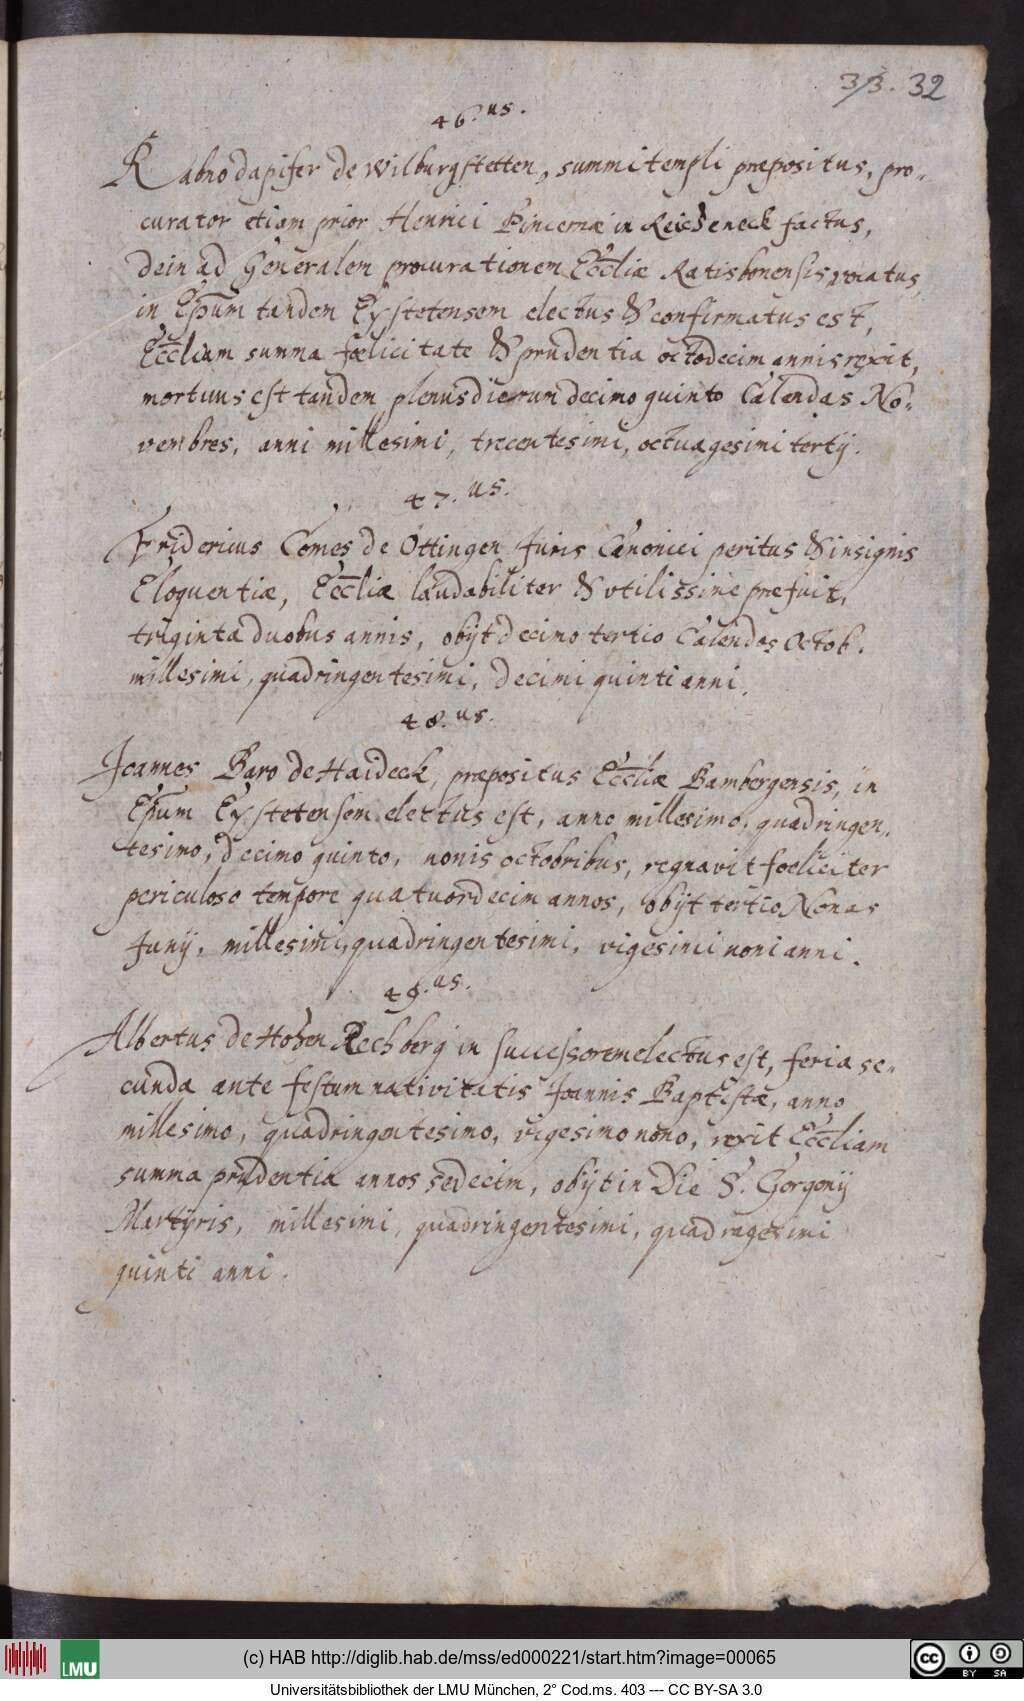 33. 32
46.us.
Rabno dapifer de Wilburgstetten, summi templi præpositus, pro-
curator etiam prior Henrici Pincernæ in Reicheneck factus,
dein ad Generalem procurationem Eccliæ Ratisbonensis vocatus,
in Epum tandem Eystetensem electus & confirmatus est,
Eccliam summa fœlicitate & prudentia octodecim annis rexit,
mortuus est tandem plenus dierum decimo quinto Calendas No-
vembres, anni millesimi, trecentesimi, octuagesimi tertij.
47.us.
Fridericus Comes de Ottingen Juris Canonici peritus & insignis
Eloquentiæ, Eccliæ laudabiliter & utilissime præfuit,
triginta duobus annis, obijt decimo tertio Calendas Octob.
millesimi, quadringentesimi, decimi quinti anni.
48.us.
Joannes Baro de Haideck, præpositus Eccliæ Bambergensis, in
Epum Eystetensem electus est, anno millesimo, quadringen-
tesimo, decimo quinto, nonis octobribus, regnavit fœliciter
periculoso tempore quatuordecim annos, obijt tertio Nonas
Junij, millesimi, quadringentesimi, vigesimi noni anni.
49.us.
Albertus de Hohen Rechberg in successorem electus est, feria se-
cunda ante festum nativitatis Joannis Baptistæ, anno
millesimo, quadringentesimo, vigesimo nono, rexit Eccliam
summa prudentia annos sedecim, obijt in Die S. Gorgonij
Martyris, millesimi, quadringentesimi, quadragesimi
quinti anni.
LMU
(c) HAB http://diglib.hab.de/mss/ed000221/start.htm?image=00065
cc BY SA
Universitätsbibliothek der LMU München, 2° Cod.ms. 403 --- CC BY-SA 3.0